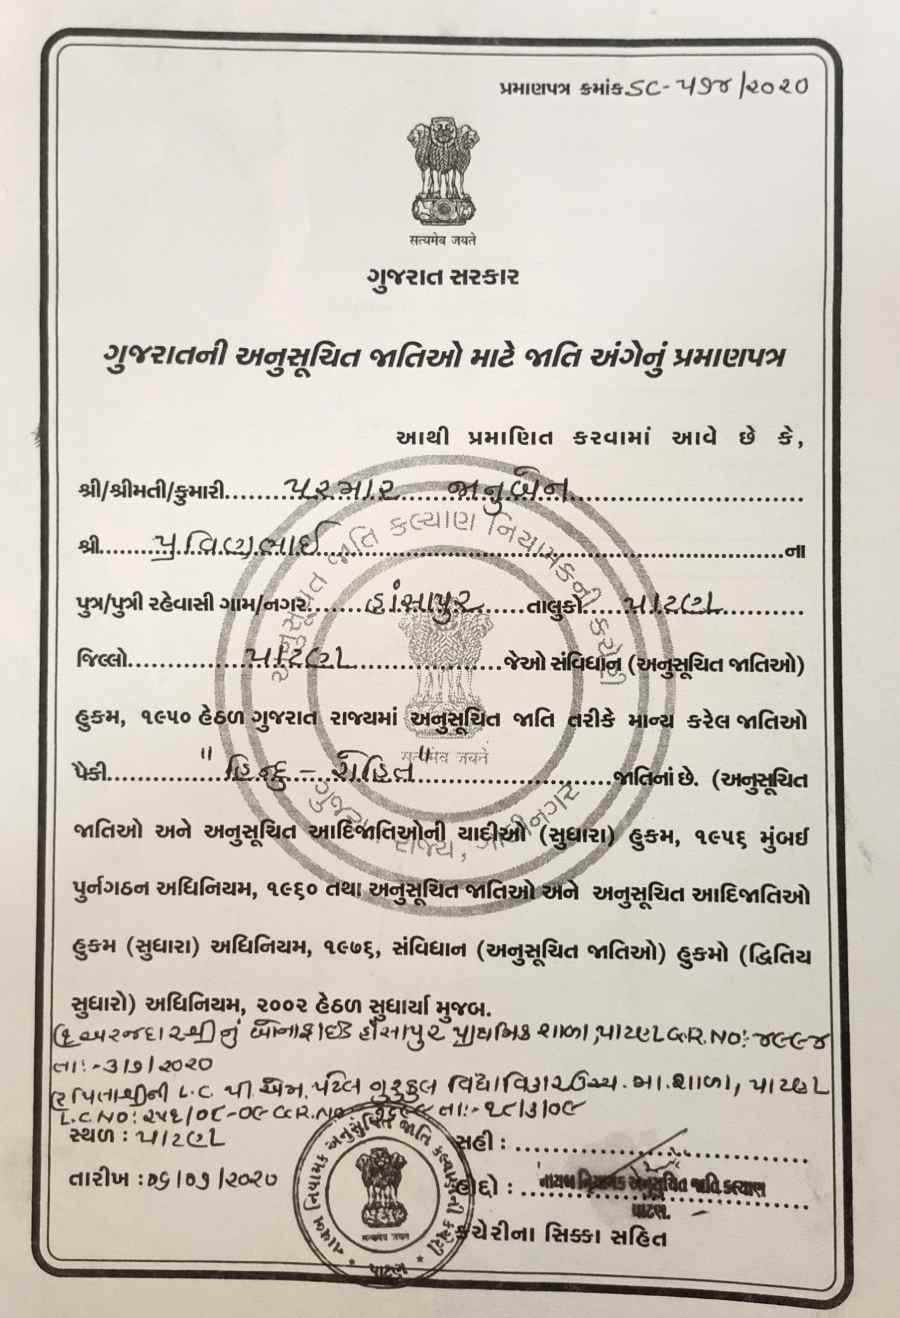 પ્રમાણપત્ર ક્રમાંક SC-૫૭૪/૨૦૨૦
सत्यमेव जयते
ગુજરાત સરકાર
ગુજરાતની અનુસૂચિત જાતિઓ માટે જાતિ અંગેનું પ્રમાણપત્ર
આથી પ્રમાણિત કરવામાં આવે છે કે,
શ્રી/શ્રીમતી/કુમારી......પરમાર જાનુબેન......
શ્રી......પ્રવિણભાઈ......ના
પુત્ર/પુત્રી રહેવાસી ગામ/નગર......હાંસાપુર......તાલુકો......પાટણ......
જિલ્લો......પાટણ......જેઓ સંવિધાન (અનુસૂચિત જાતિઓ)
હુકમ, ૧૯૫૦ હેઠળ ગુજરાત રાજ્યમાં અનુસૂચિત જાતિ તરીકે માન્ય કરેલ જાતિઓ
પૈકી......"હિન્દુ - રોહિત"......જાતિનાં છે. (અનુસૂચિત
જાતિઓ અને અનુસૂચિત આદિજાતિઓની યાદીઓ (સુધારા) હુકમ, ૧૯૫૬ મુંબઈ
પુર્નગઠન અધિનિયમ, ૧૯૬૦ તથા અનુસૂચિત જાતિઓ અને અનુસૂચિત આદિજાતિઓ
હુકમ (સુધારા) અધિનિયમ, ૧૯૭૬, સંવિધાન (અનુસૂચિત જાતિઓ) હુકમો (દ્વિતિય
સુધારો) અધિનિયમ, ૨૦૦૨ હેઠળ સુધાર્યા મુજબ.
અરજદારશ્રી નું બોનાફાઈડ હાંસાપુર પ્રાથમિક શાળા, પાટણ G.R.NO:-૪૯૯૪
તા:-૩/૭/૨૦૨૦
પિતાશ્રીની L.C પી.એમ. પટેલ ગુરુકુલ વિદ્યાવિહાર ઉચ્ચ.મા.શાળા, પાટણ
L.C NO: ૨૫૬/૦૮-૦૯ G.R.No તા:-૧૮/૩/૦૯
સ્થળ : પાટણ
સહી : ......
તારીખ : ૦૬/૦૭/૨૦૨૦
હોદ્દો : નાયબ નિયામક અનુસૂચિત જાતિ કલ્યાણ
પાટણ.
કચેરીના સિક્કા સહિત
અનુસૂચિત જાતિ કલ્યાણ નિયામકની કચેરી
ગુજરાત રાજ્ય, ગાંધીનગર
सत्यमेव जयते
નાયબ નિયામક અનુસુચિત જાતિ કલ્યાણની કચેરી
પાટણ
सत्यमेव जयते